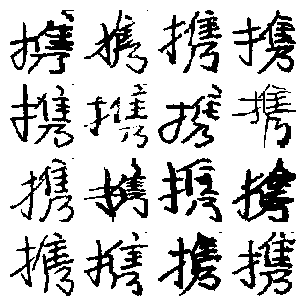 携携携携
携携携携
携携携携
携携携携